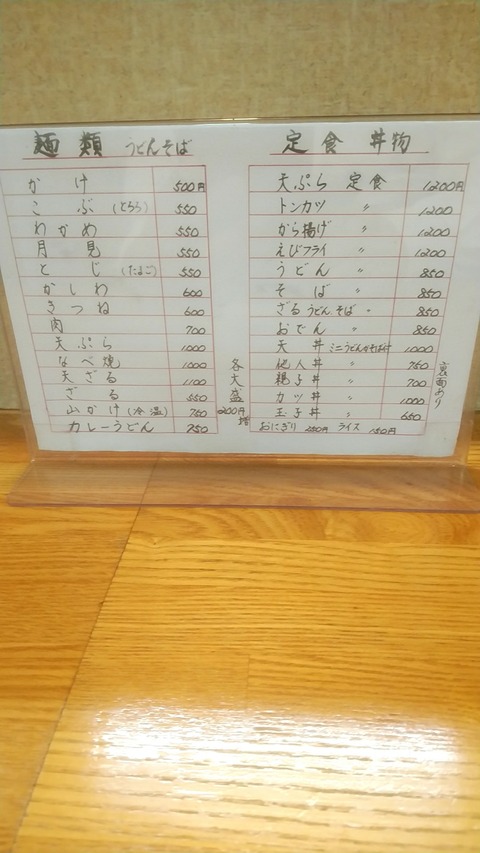 麺類 うどんそば
かけ 500円
こぶ(とろろ) 550
わかめ 550
月見 550
とじ(たまご) 550
かしわ 600
きつね 600
肉 700
天ぷら 1000
なべ焼 1000
天ざる 1100
ざる 550
山かけ(冷温) 750
カレーうどん 750
各大盛
200円
増
定食 丼物
天ぷら 定食 1200円
トンカツ 〃 1200
から揚げ 〃 1200
えびフライ 〃 1200
うどん 〃 850
そば 〃 850
ざるうどんそば 〃 850
おでん 〃 850
天丼 ミニうどんorそば付 1000
他人丼 〃 750
親子丼 〃 700
カツ丼 〃 1000
玉子丼 〃 650
おにぎり 250円 ライス 150円
裏面あり